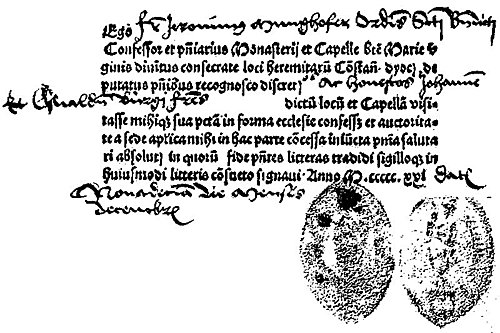 Ego fr Jeronimus Munghofer Ordis Scti Bndicti
Confessor et pñiarius Monasterij et Capelle bte Marie v
ginis diuinitus consecrate loci heremitarũ Cõstañ. dyoc̃. de
putatus pñibus recognosco discret Ac honestos Johannem
et burgi frẽs dictũ locũ et Capellã visi
tasse mihiqʒ sua pctã in forma ecclesie confessʒ et auctoritate
a sede aplica mihi in hac parte cõcessa iniũcta pñia saluta
ri absolui in quorũ fide pñtes litteras tradidi sigilloqʒ in
huiusmodi litteris cõsueto signaui. Anno M.ccccc.xxi Dat
Nona die Mensis
Decembr